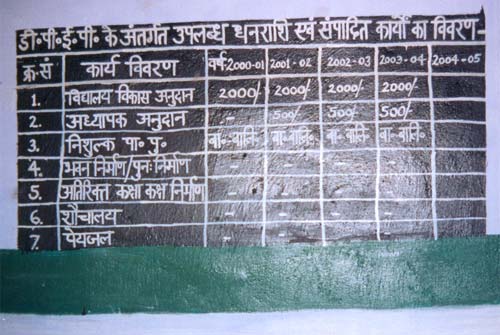 डी॰पी॰ई॰पी॰ के अंतर्गत उपलब्ध धनराशि एवं संपादित कार्यों का विवरण-
क्र॰सं कार्य विवरण वर्ष-2000-01 2001-02 2002-03 2003-04 2004-05
1. विद्यालय विकास अनुदान 2000/- 2000/- 2000/- 2000/-
2. अध्यापक अनुदान - 500/- 500/- 500/-
3. निशुल्क पा॰ पु॰ बा॰-बालि॰ बा॰-बालि॰ बा॰-बालि॰ बा॰-बालि॰
4. भवन निर्माण/पुनः निर्माण - - - -
5. अतिरिक्त कक्षा कक्ष निर्माण - - - -
6. शौचालय - - - -
7. पेयजल - - - -